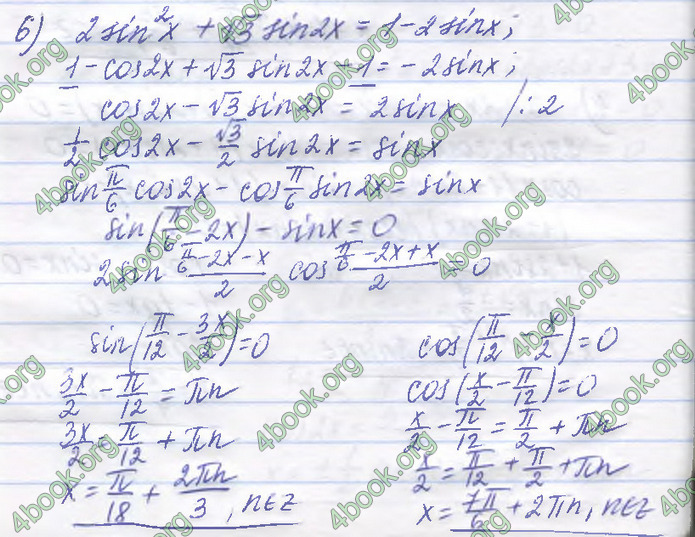 б) 2sin²x + √3 sin2x = 1 - 2sinx;
1 - cos2x + √3 sin2x - 1 = -2sinx;
cos2x - √3 sin2x = 2sinx /:2
1/2 cos2x - √3/2 sin2x = sinx
sin π/6 cos2x - cos π/6 sin2x = sinx
sin(π/6 - 2x) - sinx = 0
2sin (π/6 - 2x - x)/2 cos (π/6 - 2x + x)/2 = 0
sin(π/12 - 3x/2) = 0
3x/2 - π/12 = πn
3x/2 = π/12 + πn
x = π/18 + 2πn/3, n∈Z
cos(π/12 - x/2) = 0
cos(x/2 - π/12) = 0
x/2 - π/12 = π/2 + πn
x/2 = π/12 + π/2 + πn
x = 7π/6 + 2πn, n∈Z
4book.org